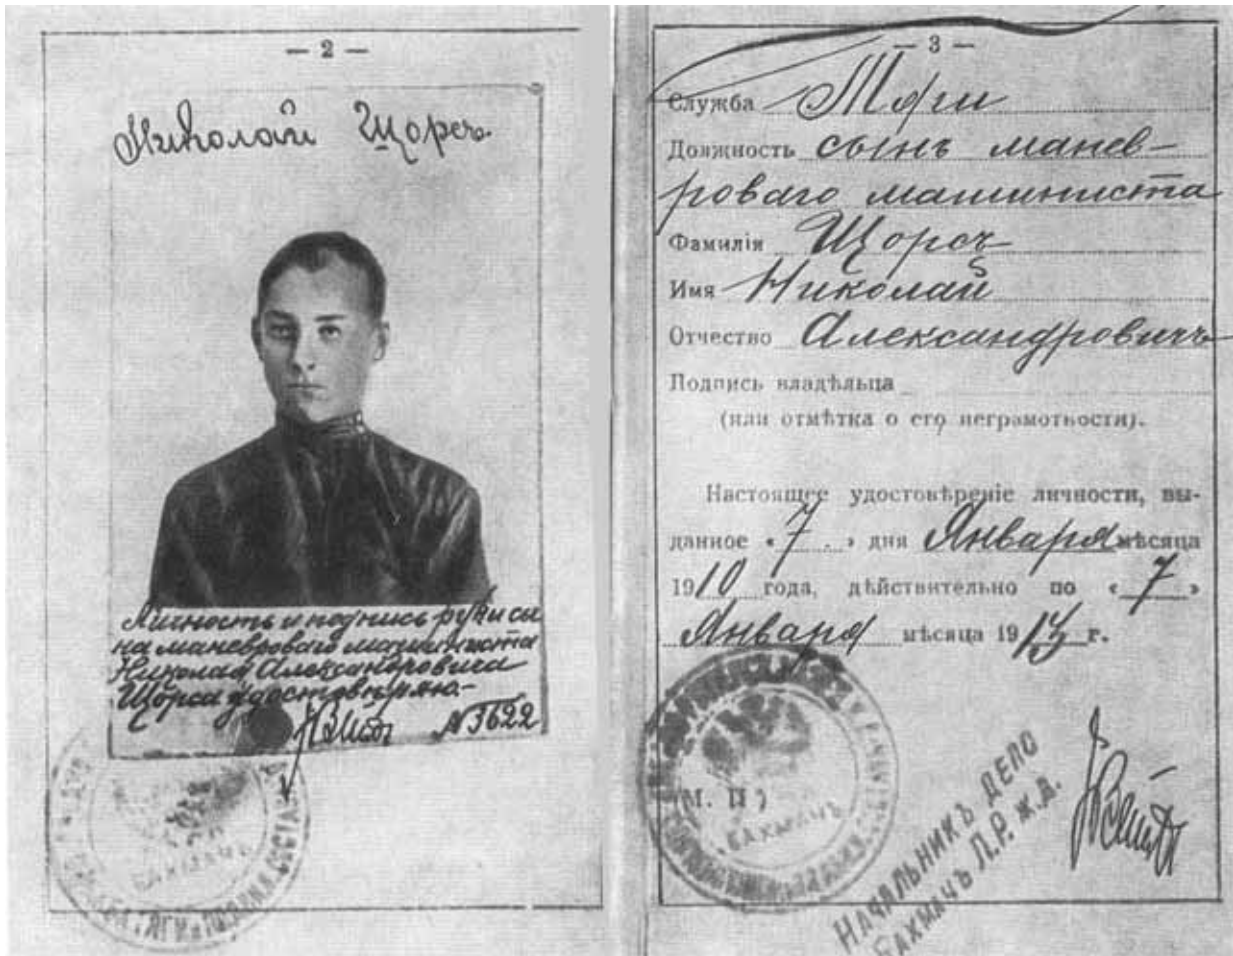 — 2 —
Николай Щорсъ
Личность и подпись руки сы
на маневроваго машиниста
Николая Александровича
Щорса удостовѣряю.—
№ 3622
БАХМАЧЪ
— 3 —
Служба Тяги
Должность сынъ манев-
роваго машиниста
Фамилія Щорсъ
Имя Николай
Отчество Александровичъ
Подпись владѣльца
(или отмѣтка о его неграмотности).
Настоящее удостовѣреніе личности, вы-
данное «7» дня Января мѣсяца
1910 года, дѣйствительно по «7»
Января мѣсяца 19 г.
(М. П.)
БАХМАЧЪ
НАЧАЛЬНИКЪ ДЕПО
БАХМАЧЪ Л.Р. Ж.Д.